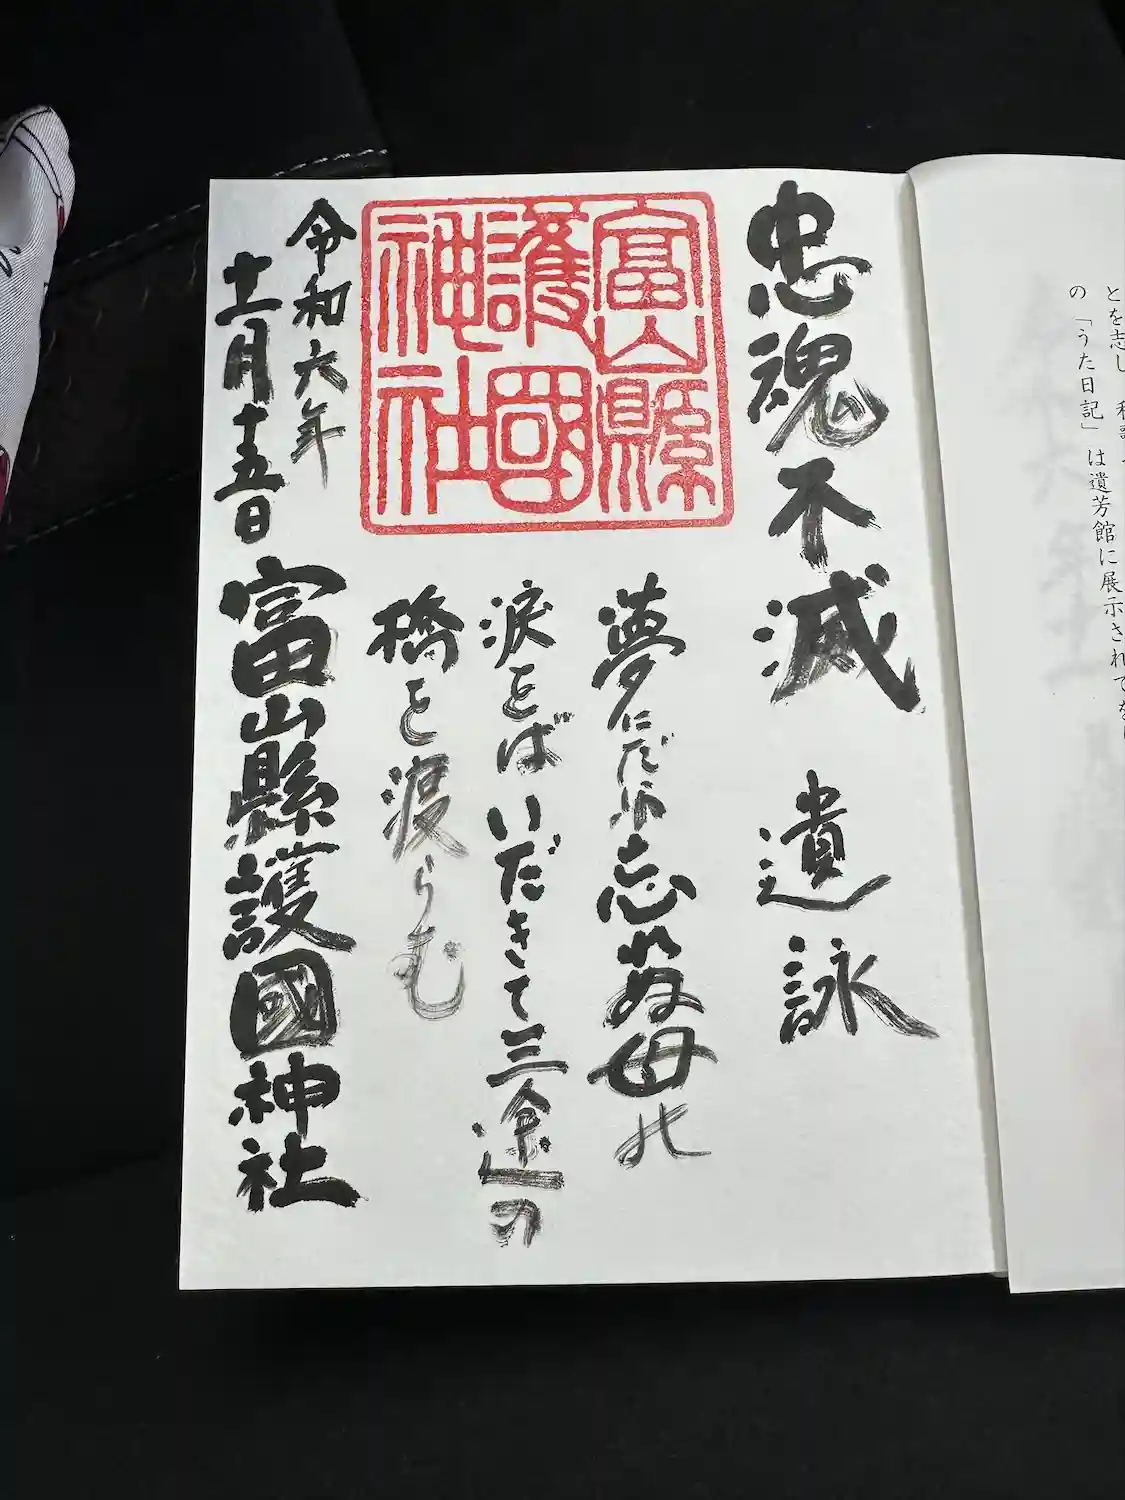 とを志し
の「うた日記」は遺芳館に展示されてを
忠魂不滅 遺詠
夢にだに忘れぬ母の
涙をばいだきて三途の
橋を渡らむ
富山縣
護國
神社
令和六年
十一月十五日
富山縣護國神社